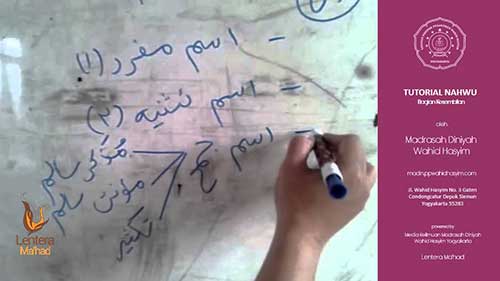 - اسم مفرد (١)
- اسم تثنيه (٢)
- اسم جمع
مذكر سالم
مؤنث سالم
تكثير
Lentera
Ma'had
TUTORIAL NAHWU
Bagian Kesembilan
oleh
Madrasah Diniyah
Wahid Hasyim
madinppwahidhasyim.com
Jl. Wahid Hasyim No. 3 Gaten
Condongcatur Depok Sleman
Yogyakarta 55283
powered by
Media Keilmuan Madrasah Diniyah
Wahid Hasyim Yogyakarta
Lentera Ma'had